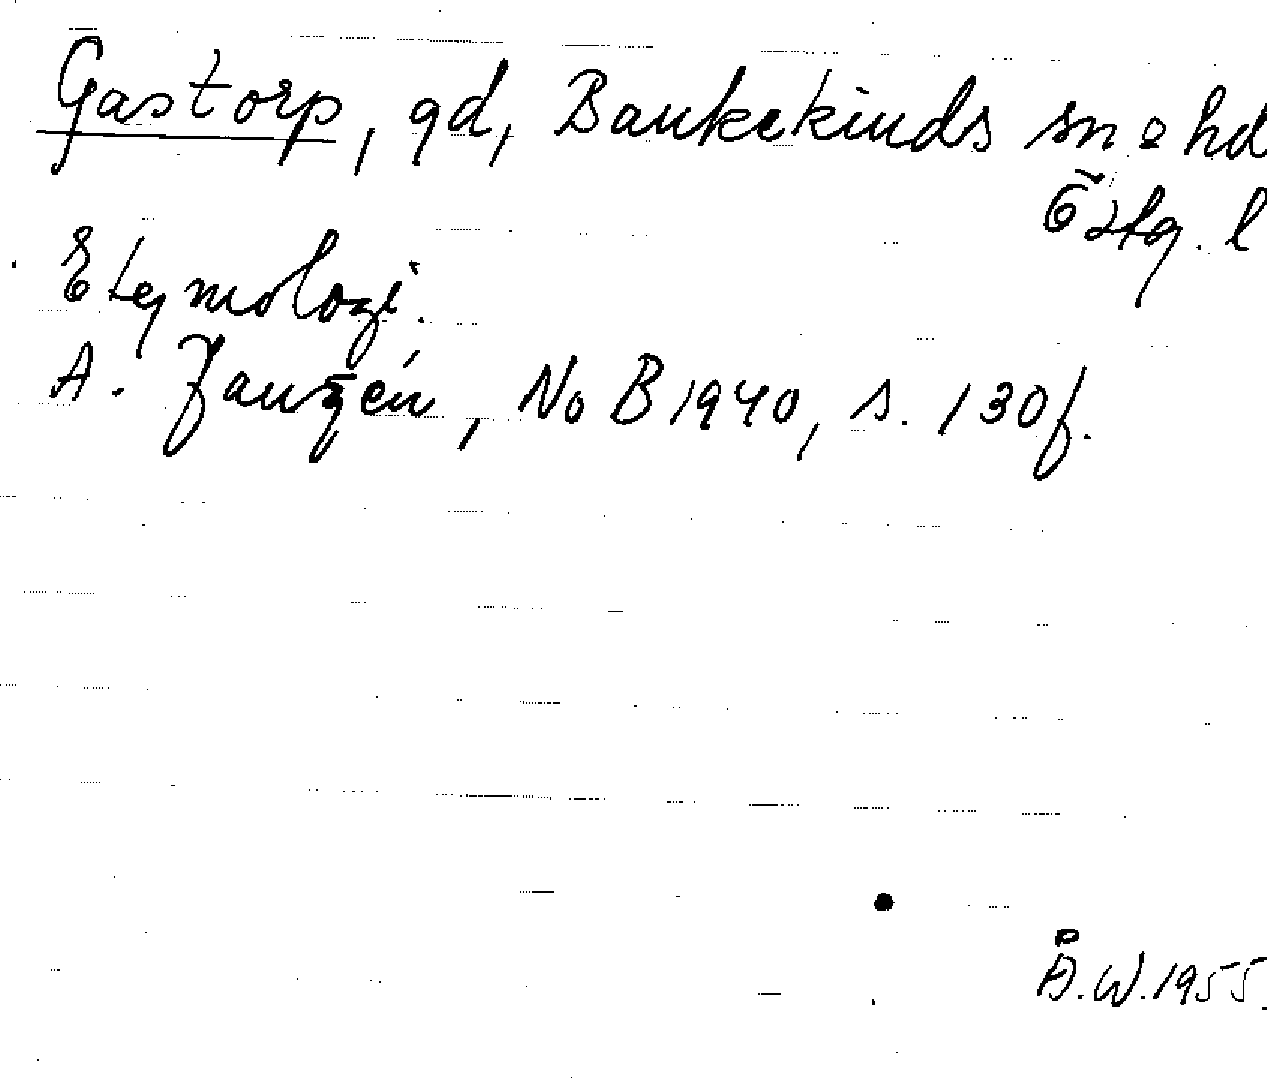 Gastorp, gd, Bankekinds sn o hd
Östg. l
Etymologi.
A. Janzén, NoB 1940, s. 130f.
Å.W. 1955.